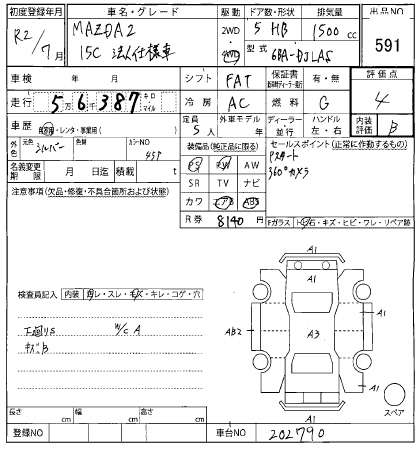 初度登録年月 車名・グレード 駆動 ドア数・形状 排気量 出品NO
R2/7月 MAZDA2 2WD 5 HB 1500 cc 591
15C 法人仕様車 4WD 型式 6BA-DJLAS
車検 年 月 シフト FAT 保証書 有・無 評価点
走行 5 6 3 8 7 キロ・マイル 冷房 AC 燃料 G 4
車歴 自家用・レンタ・事業用( ) 定員 5人 外車モデル 年 ディーラー・並行 ハンドル 左・右 内装評価 B
外色 元色 シルバー 色替 カラーNO 45P 装備品(純正品に限る) セールスポイント(正常に作動するもの)
PS PW AW Pスタート
名義変更期限 月 日迄 積載 t SR TV ナビ 360°カメラ
注意事項(欠品・修復・不具合箇所および状態) カワ エアB ABS
R券 8140 円 Fガラス トビ石・キズ・ヒビ・ワレ・リペア跡
A1
A1
検査員記入 内装 ヨゴレ・スレ・キズ・キレ・コゲ・穴
下廻りS W/C A AB2 A3 A1
キズB
A1
A1
スペア
A1
長さ cm 幅 cm 高さ cm
登録NO 車台NO 202790